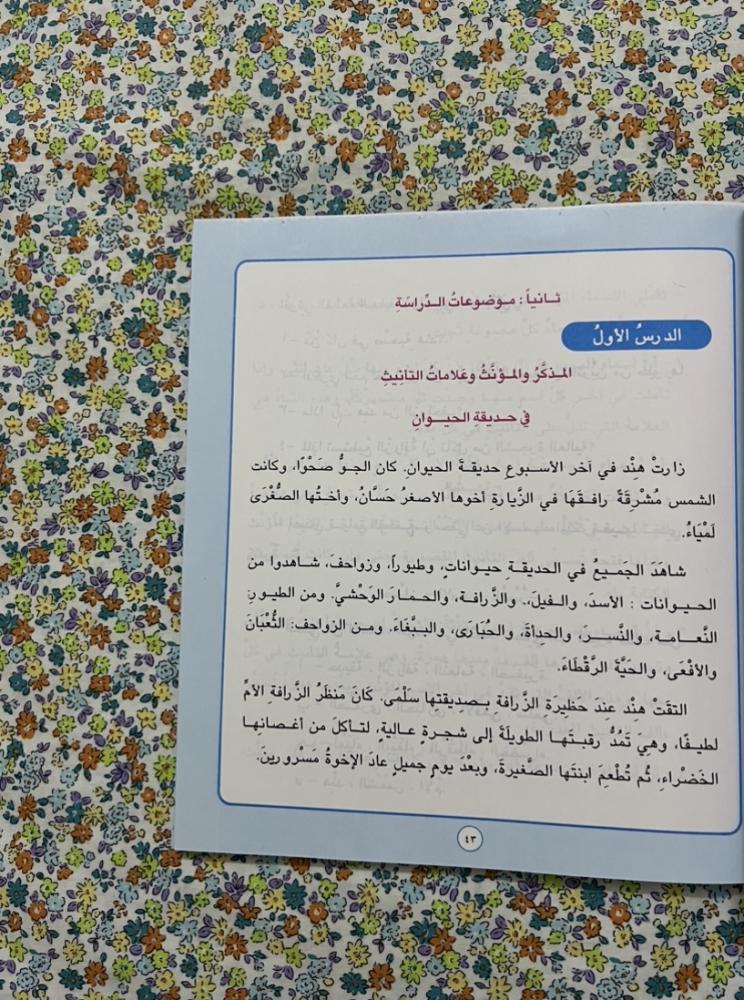 ثانياً : موضوعاتُ الدّراسَةِ
الدرسُ الأولُ
المذكَّرُ والمؤنَّثُ وعَلاماتُ التأنِيثِ
في حديقةِ الحيوانِ
زارتْ هِنْد في آخر الأسبوعِ حديقةَ الحيوانِ. كان الجوُّ صَحْوًا، وكانت
الشمس مُشْرِقَةً رافقَهَا في الزِّيارةِ أخوها الأصغرُ حَسَّانُ، وأختُها الصُّغْرَى
لَمْيَاءُ.
شاهَدَ الجَميعُ في الحديقةِ حيواناتٍ، وطيوراً، وزواحفَ، شاهدوا من
الحيوانات : الأسدَ، والفيلَ، والزَّرافةَ، والحمارَ الوَحْشيَّ. ومن الطيورِ:
النَّعامةَ، والنَّسرَ، والحِدأةَ، والحُبَارَى، والببَّغاءَ. ومن الزواحف: الثُّعْبَانَ
والأفْعَى، والحَيَّةَ الرَّقْطَاءَ.
التقَتْ هِنْد عِندَ حظيرَةِ الزَّرافة بصديقتها سَلْمَى. كَانَ مَنظَرُ الزَّرافةِ الأمِّ
لطيفًا، وهيَ تَمُدُّ رقبتَها الطويلَةَ إلى شجرة عاليةٍ، لتأكلَ من أغصانها
الخَضْراءِ، ثُم تُطْعِمَ ابنتَها الصَّغيرةَ، وبعْدَ يومٍ جميلٍ عادَ الإخوةُ مَسْرُورينَ.
٤٣